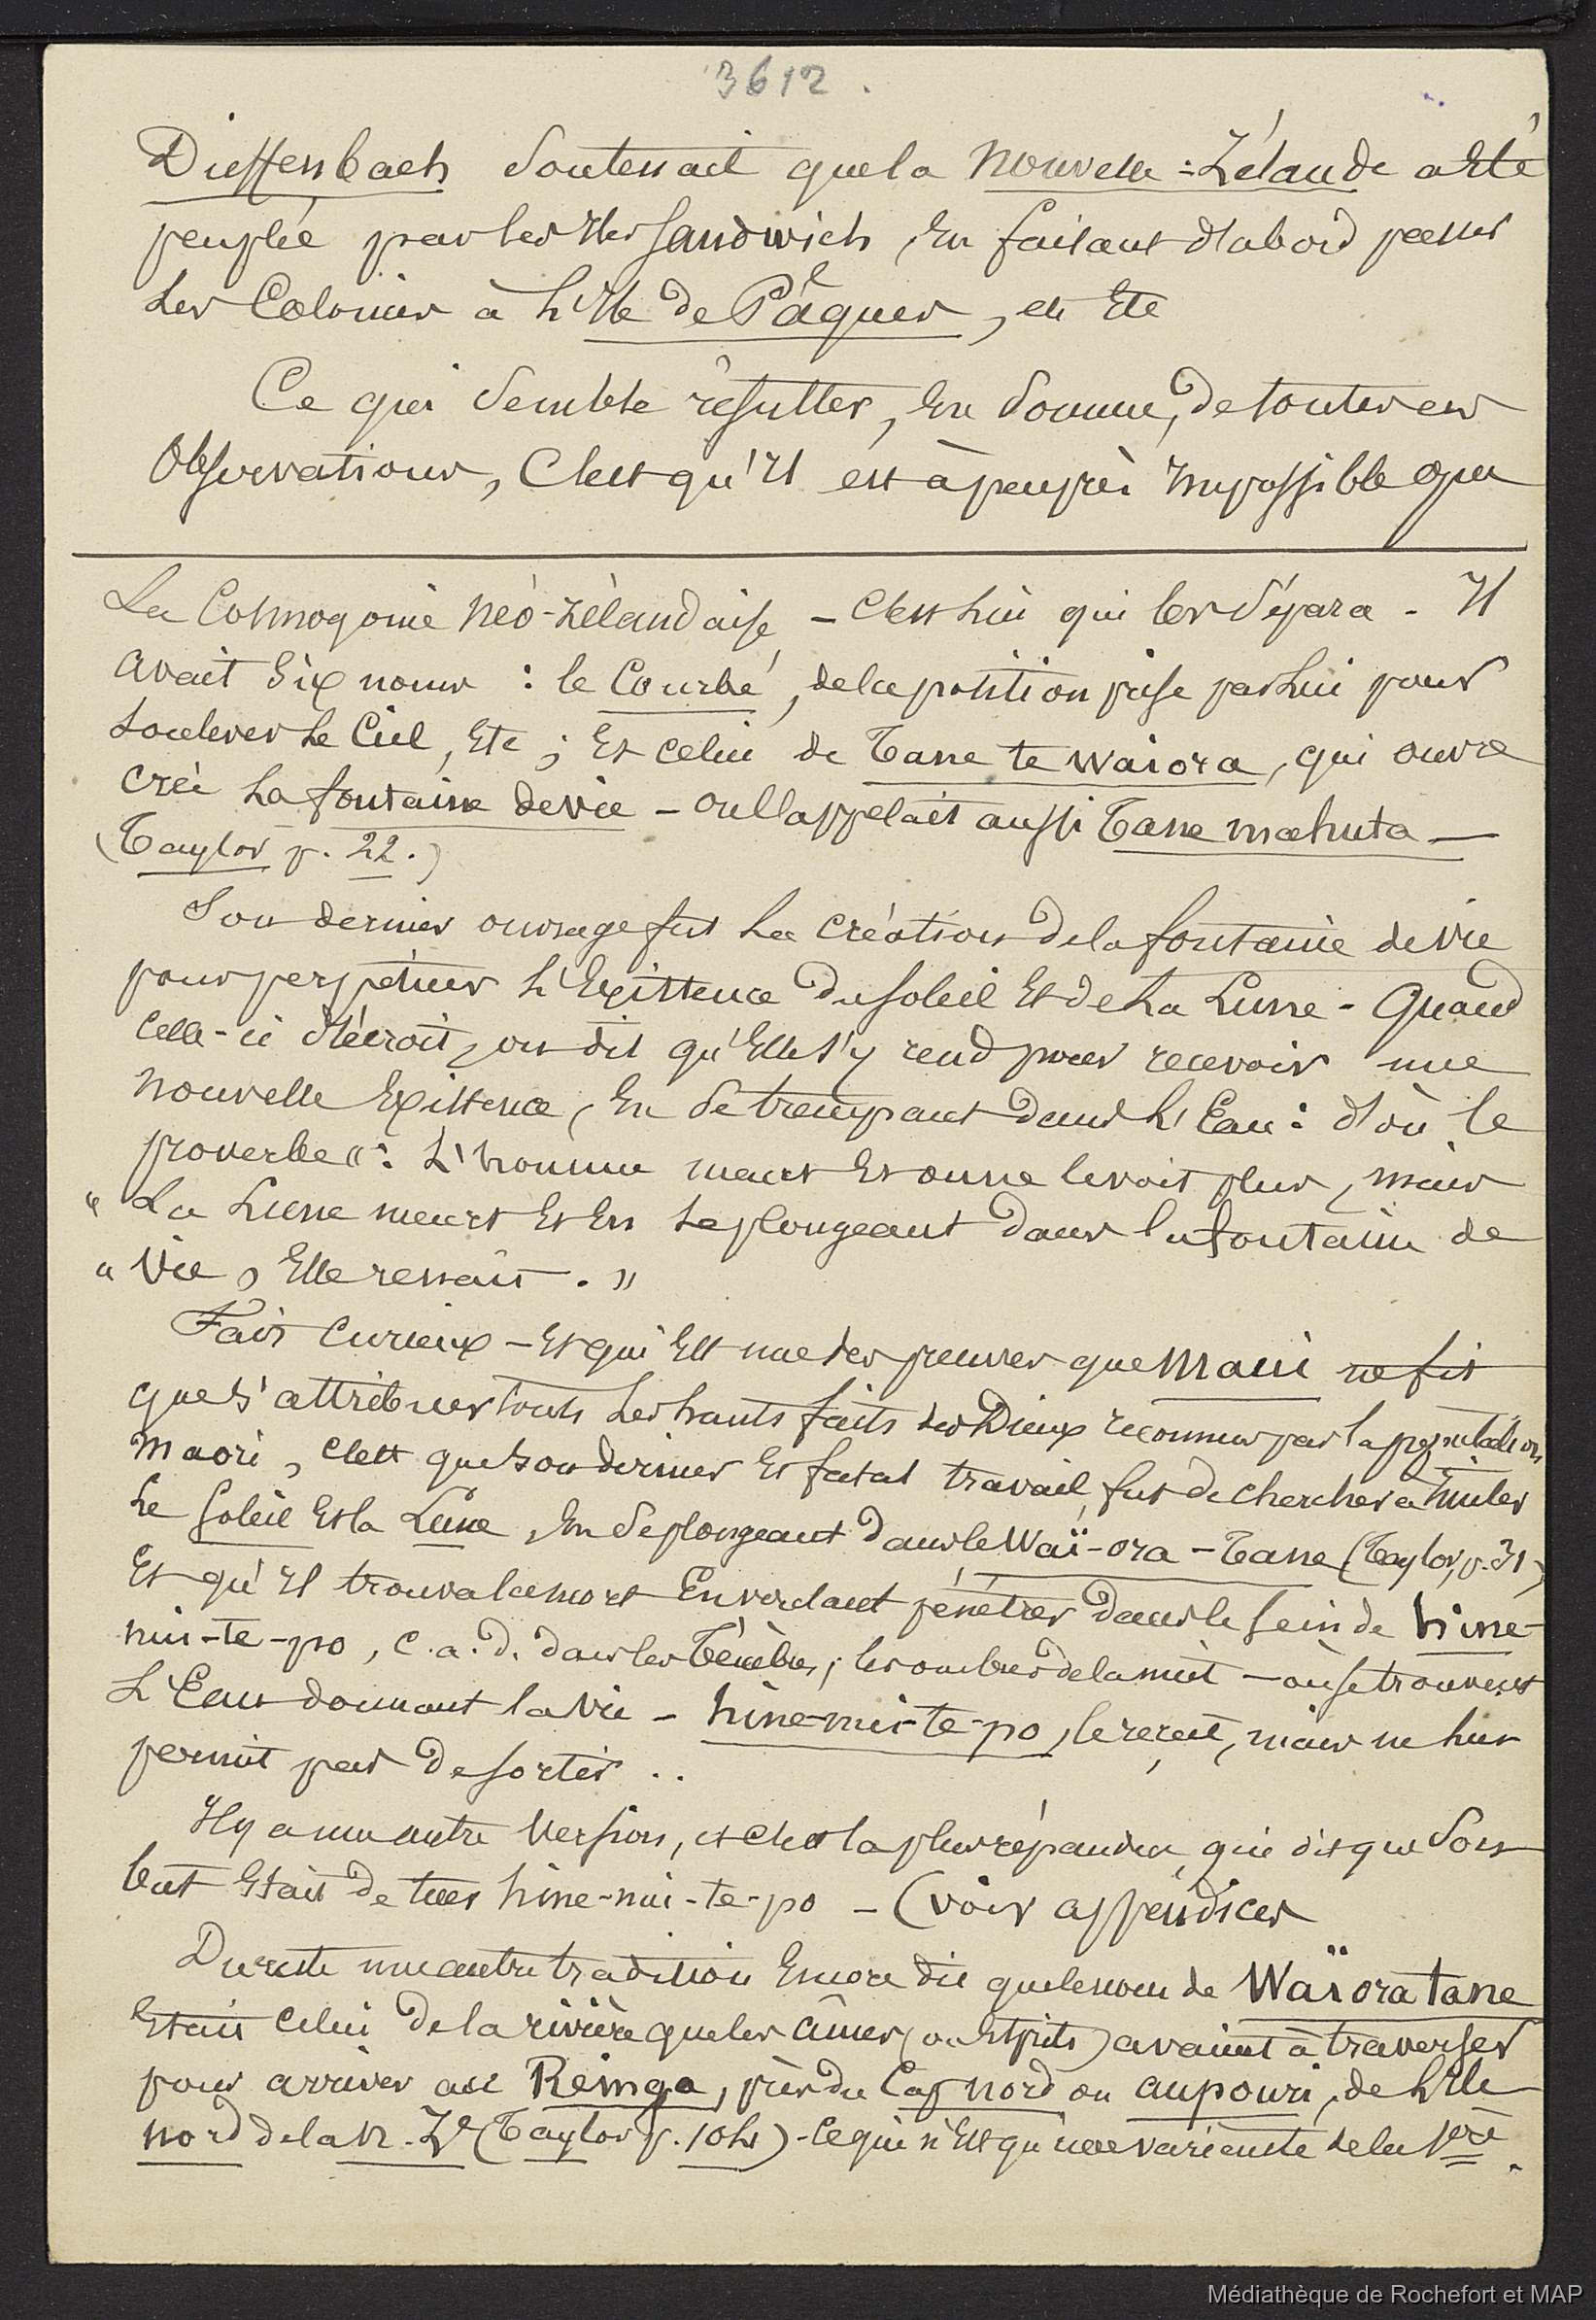 3612.
Dieffenbach soutenait que la Nouvelle-Zélande a Eté
peuplée par les Iles Sandwich, En faisant d'abord passer
les Colonies à l'Ile de Pâques, et Etc
Ce qui semble résulter, En somme, de toutes ces
Observations, C'est qu'Il est à peu près Impossible que
La Cosmogonie Néo-Zélandaise - C'est Lui qui les sépara - Il
avait Six noms : le Courbé, de la position prise par Lui pour
soulever le Ciel, Etc ; Et celui de Tane te waiora, qui ouvre
crée la fontaine de vie - on l'appelait aussi Tane mahuta -
(Taylor p. 22.)
Son dernier ouvrage fut la création de la fontaine de vie
pour perpétuer l'Existence du soleil Et de la Lune - Quand
Celle-ci décroit, on dit qu'Elle s'y rend pour recevoir une
nouvelle Existence, En se trempant dans l'Eau : d'où le
proverbe ": L'homme meurt Et on ne le voit plus, mais
" La Lune meurt Et En se plongeant dans la fontaine de
" Vie, Elle renait . "
Fait Curieux - Et qui Est une des preuves que Maui ne fit
que s'attribuer tous les hauts faits des Dieux reconnus par la population
Maori, c'est que son dernier Et fatal travail fut de chercher à Imiter
le Soleil Et la Lune, En se plongeant dans le Waï-ora-Tane (Taylor, p. 31)
Et qu'Il trouva la mort En voulant pénétrer dans le sein de hine-
nui-te-po, c.a.d. dans les Ténèbres, les ombres de la nuit - où se trouvait
L'Eau donnant la Vie - hine-nui-te-po, le reçut, mais ne lui
permit pas de sortir . .
Il y a une autre Version, et c'est la plus répandue, qui dit que son
but Etait de tuer hine-nui-te-po - (voir appendices
Du reste une autre tradition Encore dit que le nom de Waï ora tane
Etait Celui de la rivière que les âmes (ou Esprits) avaient à traverser
pour arriver au Reinga, près du Cap nord ou aupouri, de l'Ile
nord de la N. Zde (Taylor p. 104) - Ce qui n'Est qu'une variante de la 1ère.
Médiathèque de Rochefort et MAP